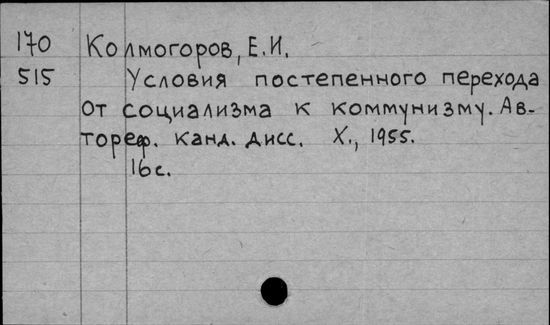 170 Колмогоров, Е.И.
515 Условия постепенного перехода
от социализма к коммунизму. Ав-
тореф. канд. дисс. Х., 1955.
16 с.